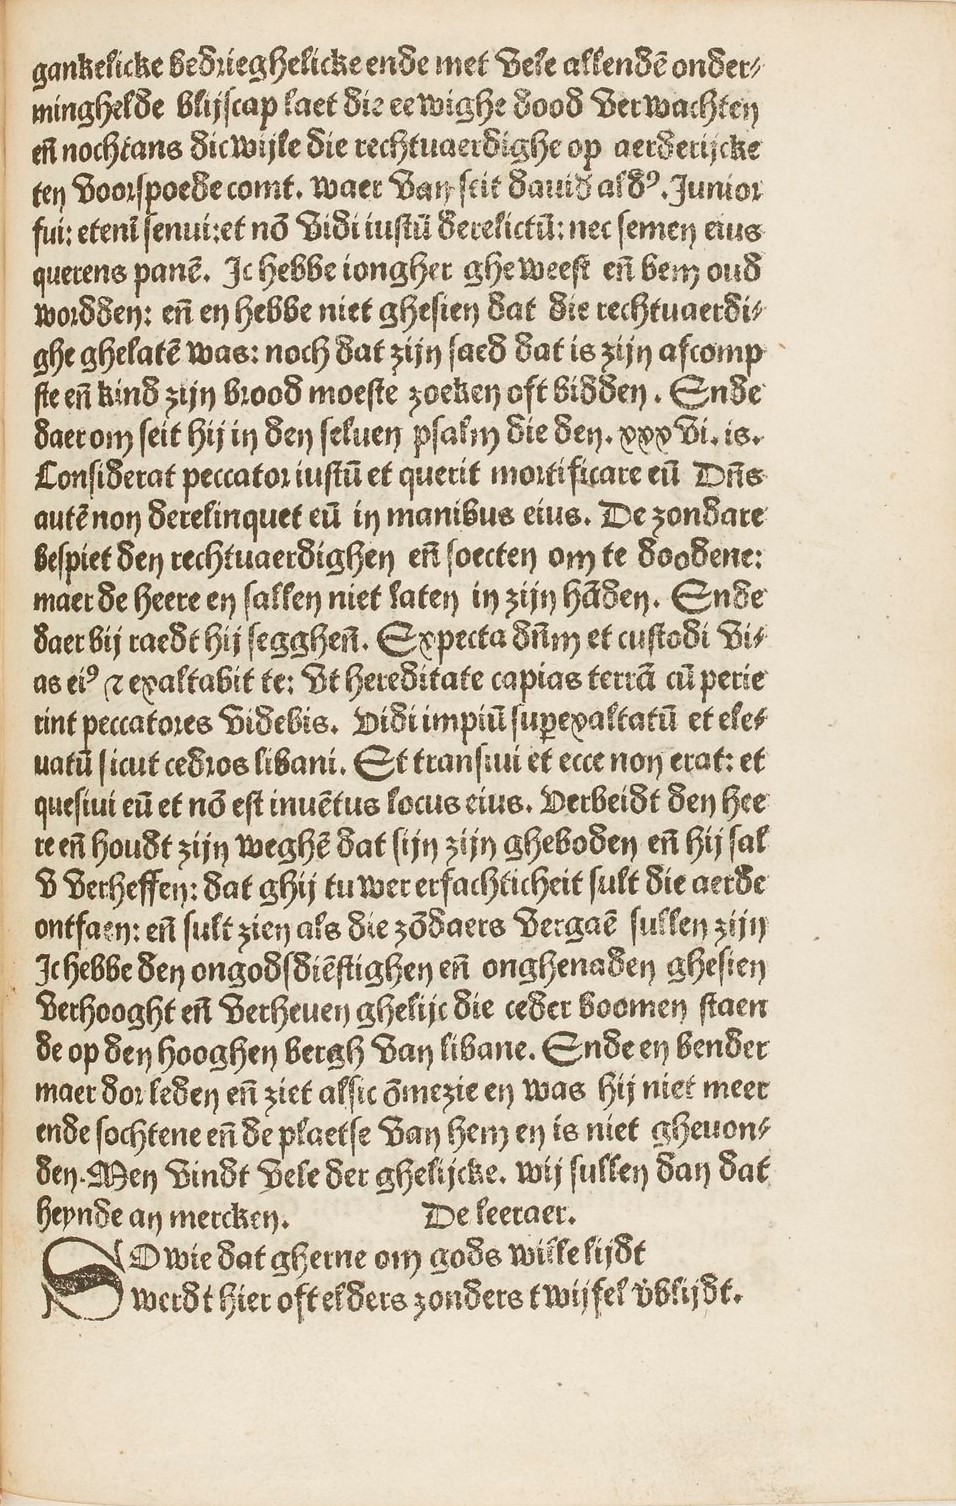 gankelicke bedrieghelicke ende met vele allendē onder⸗
minghelde blijscap laet die eewighe dood verwachten
eñ nochtans dicwijle die rechtuaerdighe op aerderijcke
ten voorspoede comt. waer van seit dauid aldꝰ. Junior
fui: etenī senui: et nō vidi iustū derelictū: nec semen eius
querens panē. Jc hebbe iongher gheweest eñ bem oud
wordden: eñ en hebbe niet ghesien dat die rechtuaerdi⸗
ghe ghelatē was: noch dat zijn saed dat is zijn afcomp
ste eñ kind zijn brood moeste zoeken oft bidden. Ende
daerom seit hij in den seluen psalm die den. xxxvi. is.
Considerat peccator iustū et querit mortificare eū Dñs
autē non derelinquet eū in manibus eius. De zondare
bespiet den rechtuaerdighen eñ soecten om te doodene:
maer de heere en sallen niet laten in zijn hādē. Ende
daer bij raedt hij segghēn. Expecta dñm et custodi vi⸗
as eiꝰ ⁊ exaltabit te: vt hereditate capias terrā cū perie
rint peccatores videbis. Vidi impiū suꝑexaltatū et ele⸗
uatū sicut cedros libani. Et transiui et ecce non erat: et
quesiui eū et nō est inuētus locus eius. Verbeidt den hee
re eñ houdt zijn weghē dat sijn zijn gheboden eñ hij sal
v verheffen: dat ghij tuwer erfachticheit sult die aerde
ontfaen: eñ sult zien als die zōdaers vergaē sullen zijn
Jc hebbe den ongodsdiēstighen eñ onghenaden ghesien
verhooght eñ verheuen ghelijc die ceder boomen staen
de op den hooghen bergh van libane. Ende en bender
maer dor leden eñ ziet alsic ōmezie en was hij niet meer
ende sochtene eñ de plaetse van hem en is niet gheuon⸗
den. Men vindt vele der ghelijcke. wij sullen dan dat
heynde an mercken. De leeraer.
SO wie dat gherne om gods wille lijdt
werdt hier oft elders zonders twijfel v̄blijdt.